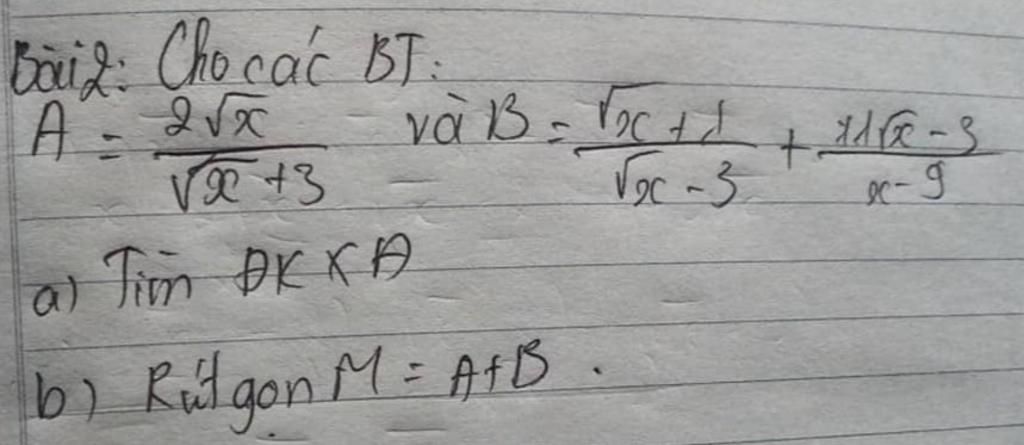 Bài 2: Cho các BT:
A = 2√x / (√x + 3) và B = (√x + 1) / (√x - 3) + (11√x - 3) / (x - 9)
a) Tìm ĐKXĐ
b) Rút gọn M = A + B.